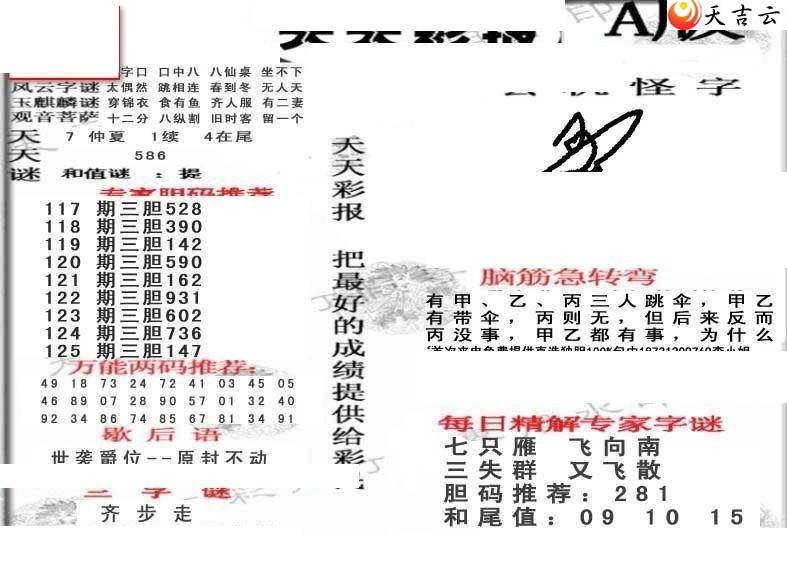 天吉云
字口 口中八 八仙桌 坐不下
风云字谜 太偶然 跳相连 春到冬 无人天
玉麒麟谜 穿锦衣 食有鱼 齐人服 有二妻
观音菩萨 十二分 八纵割 旧时客 留一个
天 7 仲夏 1续 4在尾
天 586
谜 和值谜 : 提
专家胆码推荐
117 期三胆528
118 期三胆390
119 期三胆142
120 期三胆590
121 期三胆162
122 期三胆931
123 期三胆602
124 期三胆736
125 期三胆147
万能两码推荐:
49 18 73 24 72 41 03 45 05
46 89 07 28 90 57 01 32 40
92 34 86 74 85 67 81 34 91
歇后语
世袭爵位--原封不动
三字谜
齐步走
天天彩报 把最好的成绩提供给彩
怪字
脑筋急转弯
有甲、乙、丙三人跳伞，甲乙
有带伞，丙则无，但后来反而
丙没事，甲乙都有事，为什么
每日精解专家字谜
七只雁 飞向南
三失群 又飞散
胆码推荐:281
和尾值:09 10 15